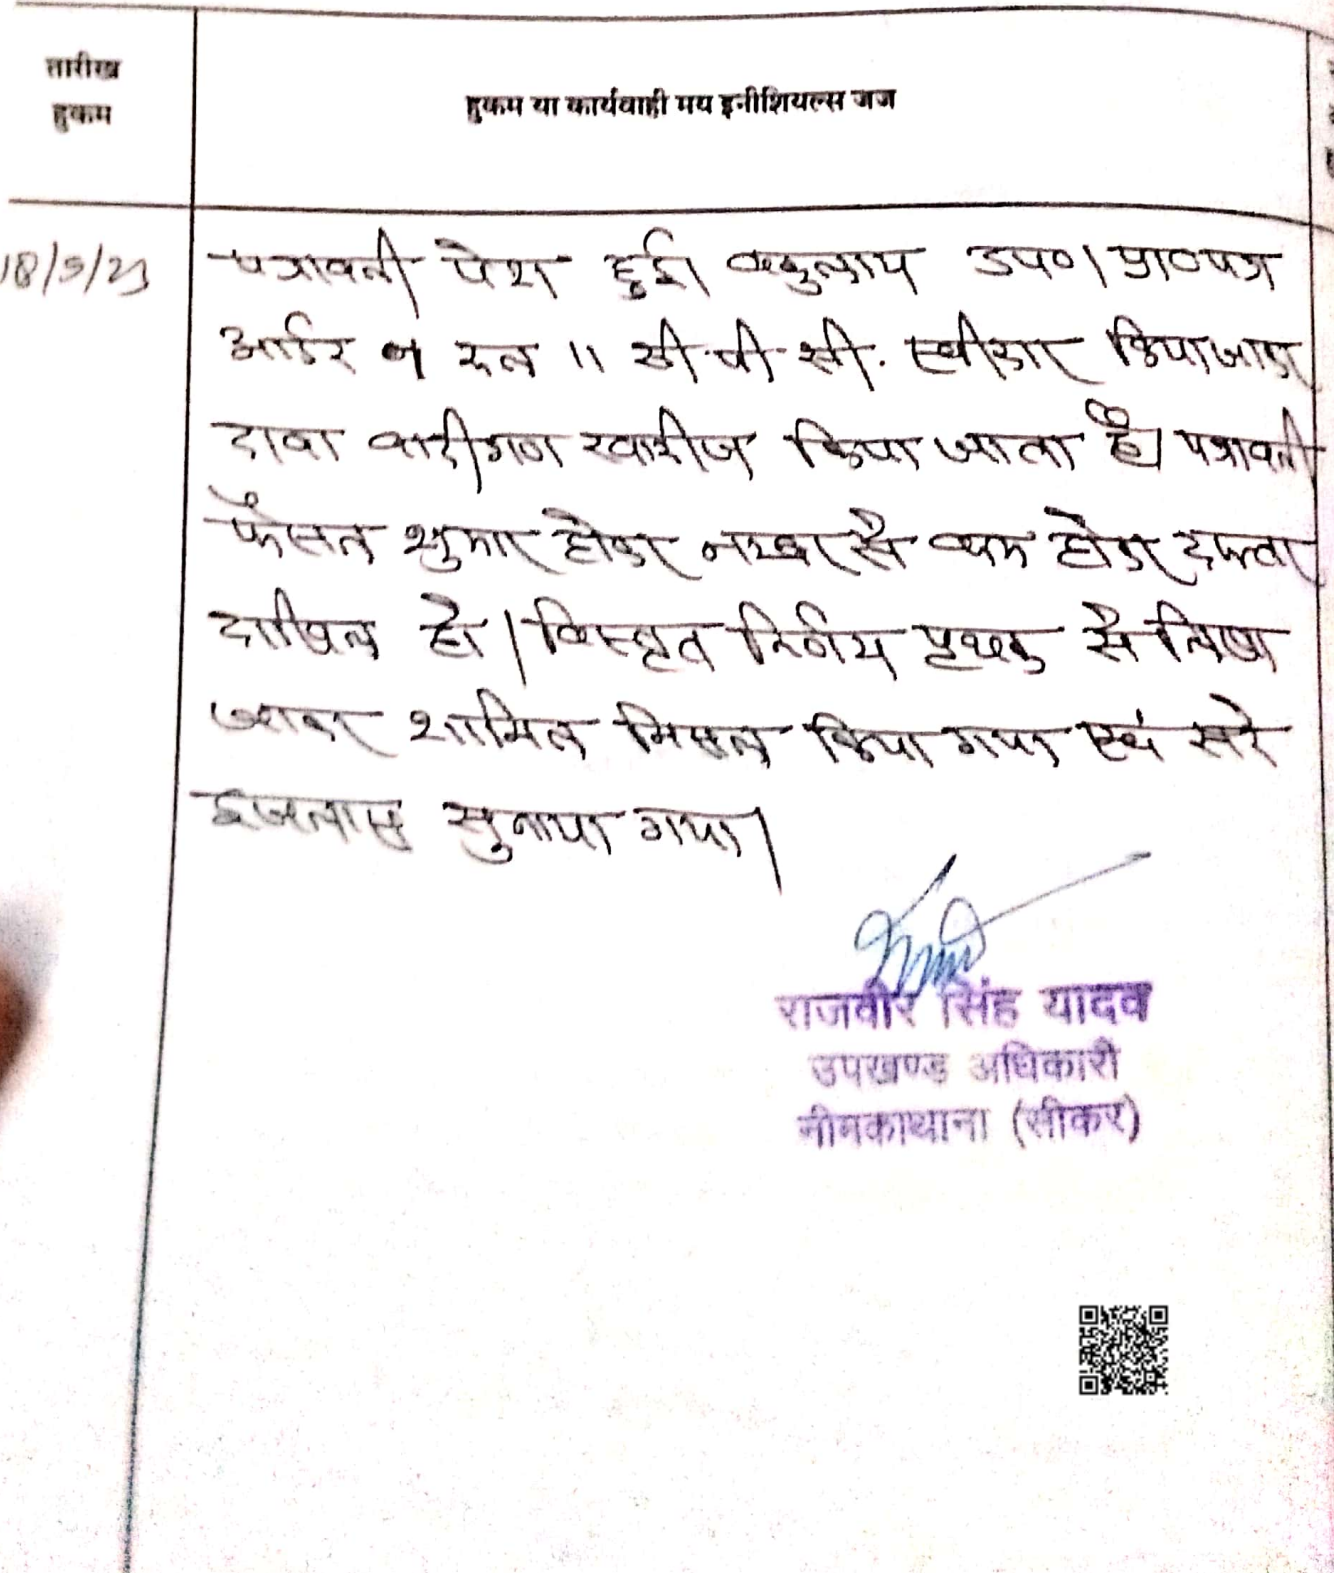 तारीख
हुकम
हुकम या कार्यवाही मय इनीशियल्स जज
18/5/23
पत्रावली पेश हुई। वकुलाय उप०। प्रा०पत्र
आर्डर 7 रूल 11 सी.पी.सी. स्वीकार किया जाकर
दावा वादीगण खारीज किया जाता है। पत्रावली
फैसल शुमार होकर नम्बर से कम होकर दफ्तर
दाखिल हो। विस्तृत निर्णय पृथक से लिखा
जाकर शामिल मिसल किया गया एवं सरे
इजलास सुनाया गया।
राजवीर सिंह यादव
उपखण्ड अधिकारी
नीमकाथाना (सीकर)